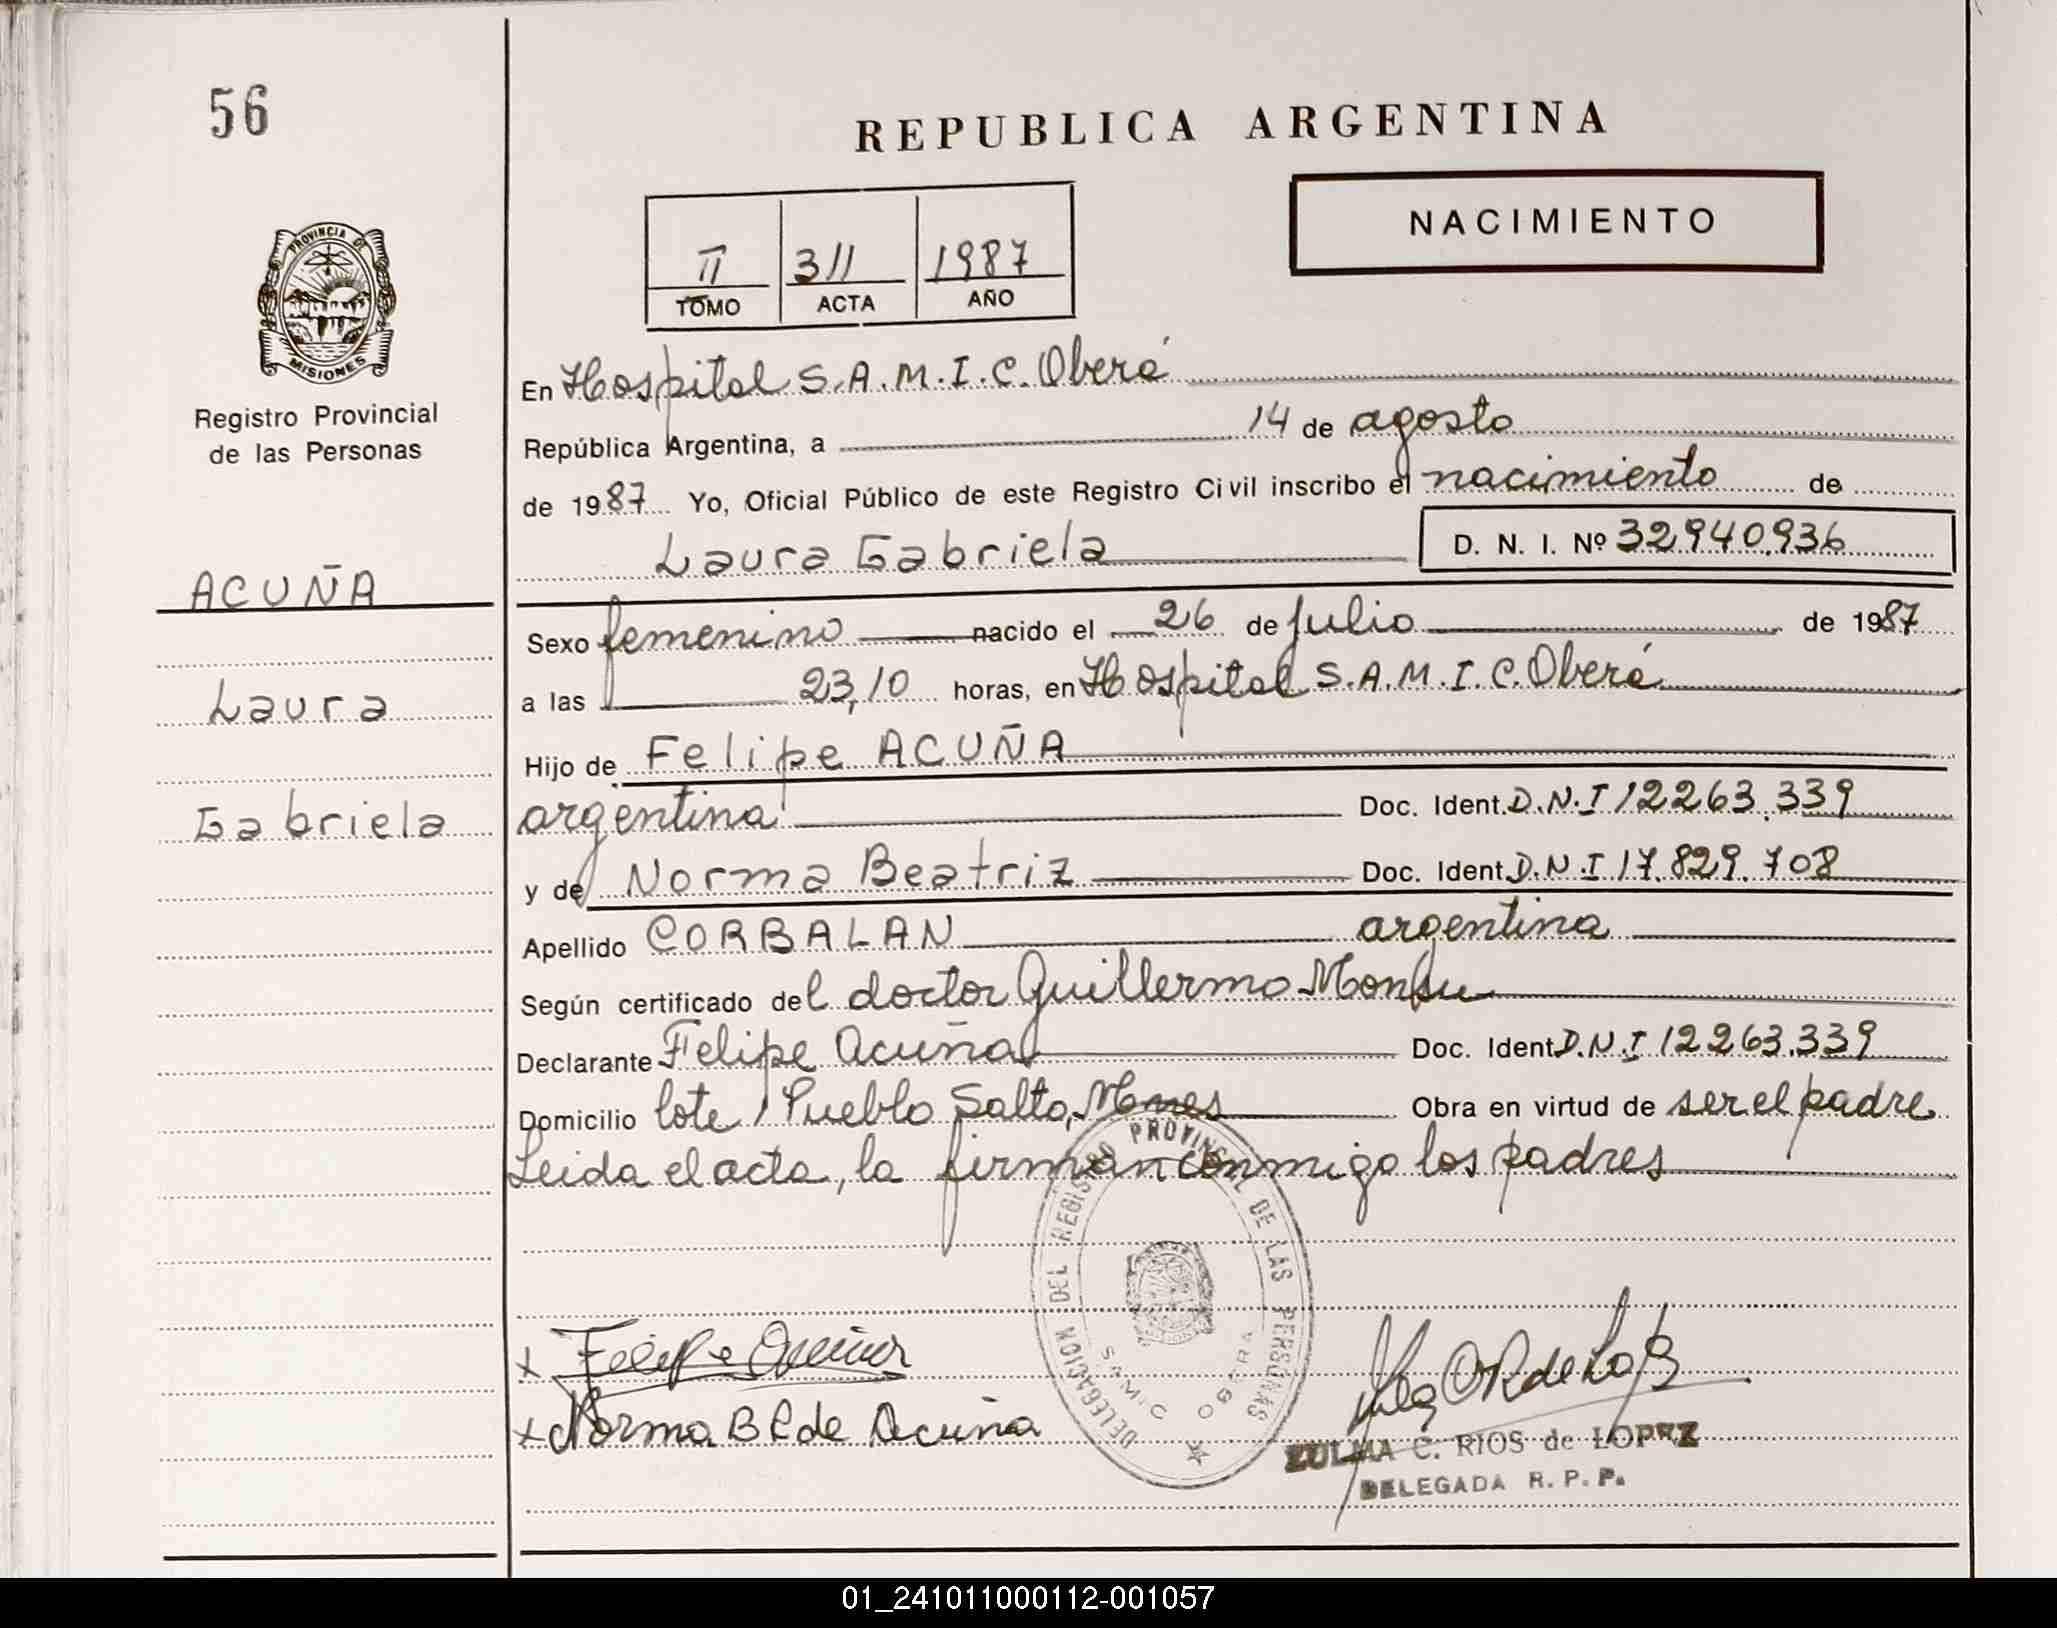 56
REPUBLICA ARGENTINA
NACIMIENTO
II 311 1987
TOMO ACTA AÑO
PROVINCIA DE
MISIONES
Registro Provincial
de las Personas
ACUÑA
Laura
Gabriela
En Hospital S.A.M.I.C. Oberá
República Argentina, a 14 de agosto
de 1987 Yo, Oficial Público de este Registro Civil inscribo el nacimiento de
Laura Gabriela D. N. I. Nº 32940.936
Sexo femenino nacido el 26 de julio de 1987
a las 23,10 horas, en Hospital S.A.M.I.C. Oberá
Hijo de Felipe ACUÑA
argentina Doc. Ident. D.N.I 12263.339
y de Norma Beatriz Doc. Ident. D.N.I 17.829.708
Apellido CORBALAN argentina
Según certificado del doctor Guillermo
Declarante Felipe Acuña Doc. Ident. D.N.I 12263.339
Domicilio lote 1 Pueblo Salto, Mnes Obra en virtud de ser el padre
Leida el acta, la firman conmigo los padres
DELEGACION DEL REGISTRO PROVINCIAL DE LAS PERSONAS
SAMIC OBERA
x Felipe Acuña
x Norma B de Acuña
ZULMA C. RIOS de LOPEZ
DELEGADA R. P. P.
01_241011000112-001057